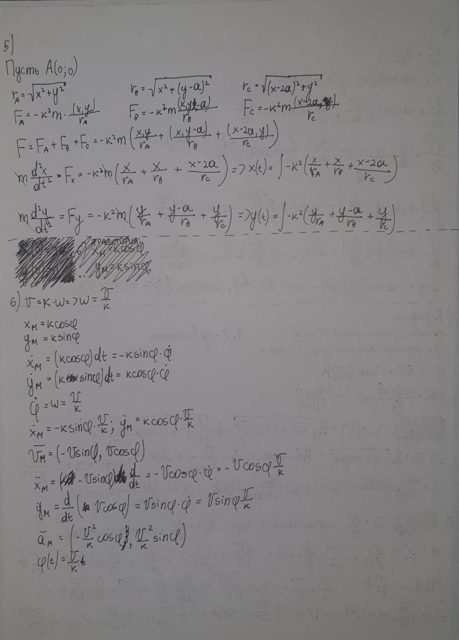 5)
Пусть A(0;0)
r_A = √(x²+y²)   r_B = √(x²+(y-a)²)   r_C = √((x-2a)²+y²)
F_A = -k²m · (x,y)/r_A   F_B = -k²m (x,y-a)/r_B   F_C = -k²m (x-2a,y)/r_C
F = F_A + F_B + F_C = -k²m ((x,y)/r_A + (x,y-a)/r_B + (x-2a,y)/r_C)
m d²x/dt² = F_x = -k²m (x/r_A + x/r_B + (x-2a)/r_C) => x(t) = ∫ -k² (x/r_A + x/r_B + (x-2a)/r_C)
m d²y/dt² = F_y = -k²m (y/r_A + (y-a)/r_B + y/r_C) => y(t) = ∫ -k² (y/r_A + (y-a)/r_B + y/r_C)
6) v = k·w => w = v/k
x_M = kcosφ
y_M = ksinφ
ẋ_M = (kcosφ)dt = -ksinφ·φ̇
ẏ_M = (ksinφ)dt = kcosφ·φ̇
φ̇ = w = v/k
ẋ_M = -ksinφ·v/k ; ẏ_M = kcosφ·v/k
v̄_M = (-vsinφ, vcosφ)
ẍ_M = -vsinφ d/dt = -vcosφ·φ̇ = -vcosφ v/k
ÿ_M = d/dt (vcosφ) = vsinφ·φ̇ = vsinφ v/k
ā_M = (-v²/k cosφ, v²/k sinφ)
φ(t) = v/k t